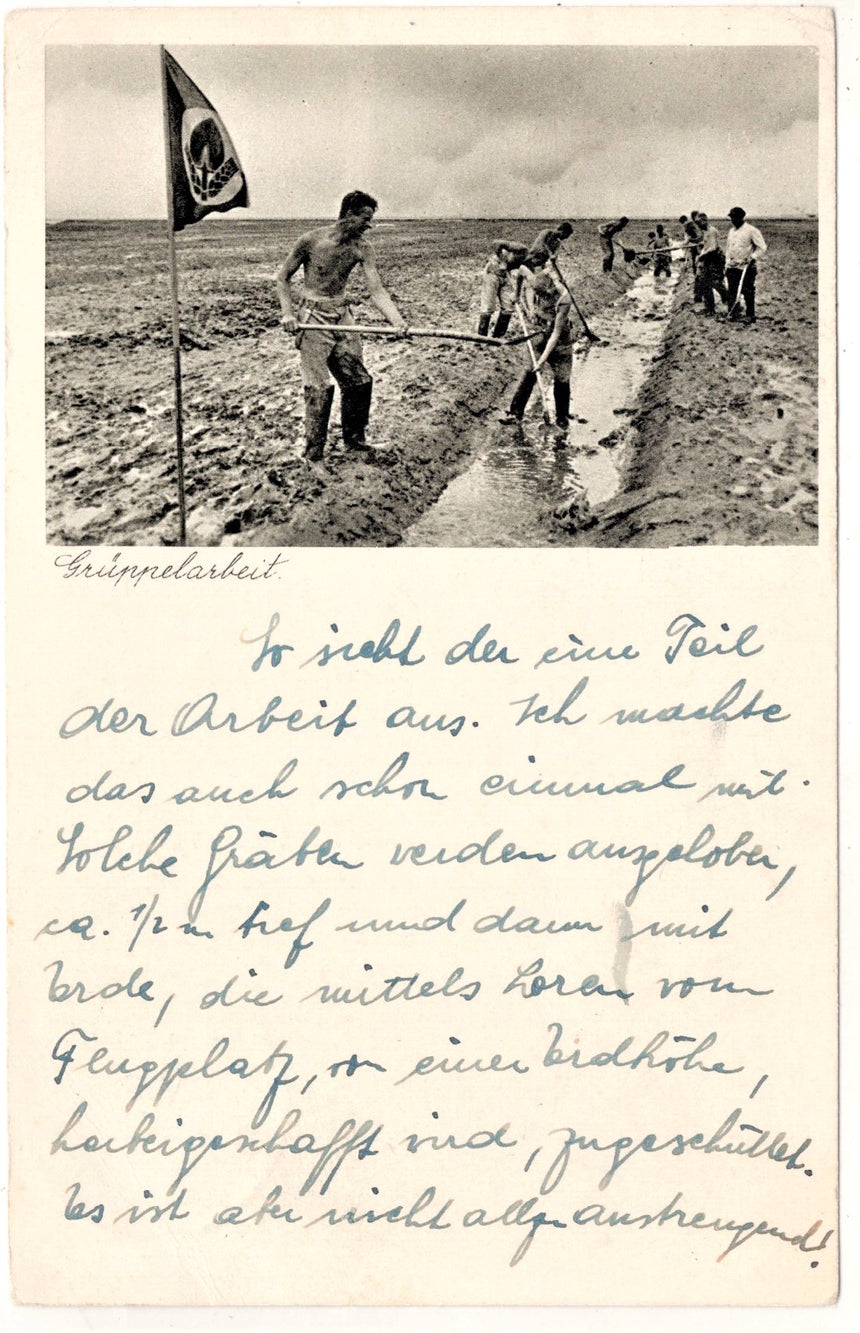 Grüppelarbeit.
So sieht der eine Teil
der Arbeit aus. Ich machte
das auch schon einmal mit.
Solche Gräben werden ausgehoben,
ca. 1/2 m tief und dann mit
Erde, die mittels Loren vom
Flugplatz, von einer Erdhöhe,
herbeigeschafft wird, zugeschüttet.
Es ist aber nicht allzu anstrengend!